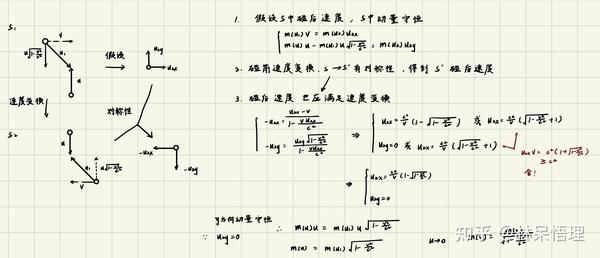 S₁
V
u√(1-v²/c²)
u₁
u
假设
u_ay
u_ax
速度变换
对称性
S₂
u
u₁
u√(1-v²/c²)
V
-u_ax
-u_ay
1. 假设S中碰后速度，S中动量守恒
{ m(u₁)V = m(u_a)u_ax
m(u)u - m(u₁)u√(1-v²/c²) = m(u_a)u_ay
2. 碰前速度变换，S→S'有对称性，得到S'碰后速度
3. 碰后速度也应满足速度变换
{ -u_ax = (u_ax - v)/(1 - v u_ax/c²)
-u_ay = u_ay√(1-v²/c²)/(1 - v u_ax/c²)
⇒ { u_ax = c²/v (1-√(1-v²/c²)) 或 u_ax = c²/v (√(1-v²/c²)+1)
u_ay=0 或 u_ax = c²/v (√(1-v²/c²)+1)
u_ax V = c²(1+√(1-v²/c²))
≥ c²
舍!
⇒ { u_ax = c²/v (1-√(1-v²/c²))
u_ay=0
y方向动量守恒
∵ u_ay=0
∴ m(u)u = m(u₁)u√(1-v²/c²)
m(u) = m(u₁)√(1-v²/c²)
u→0
知乎 @林呆悟理